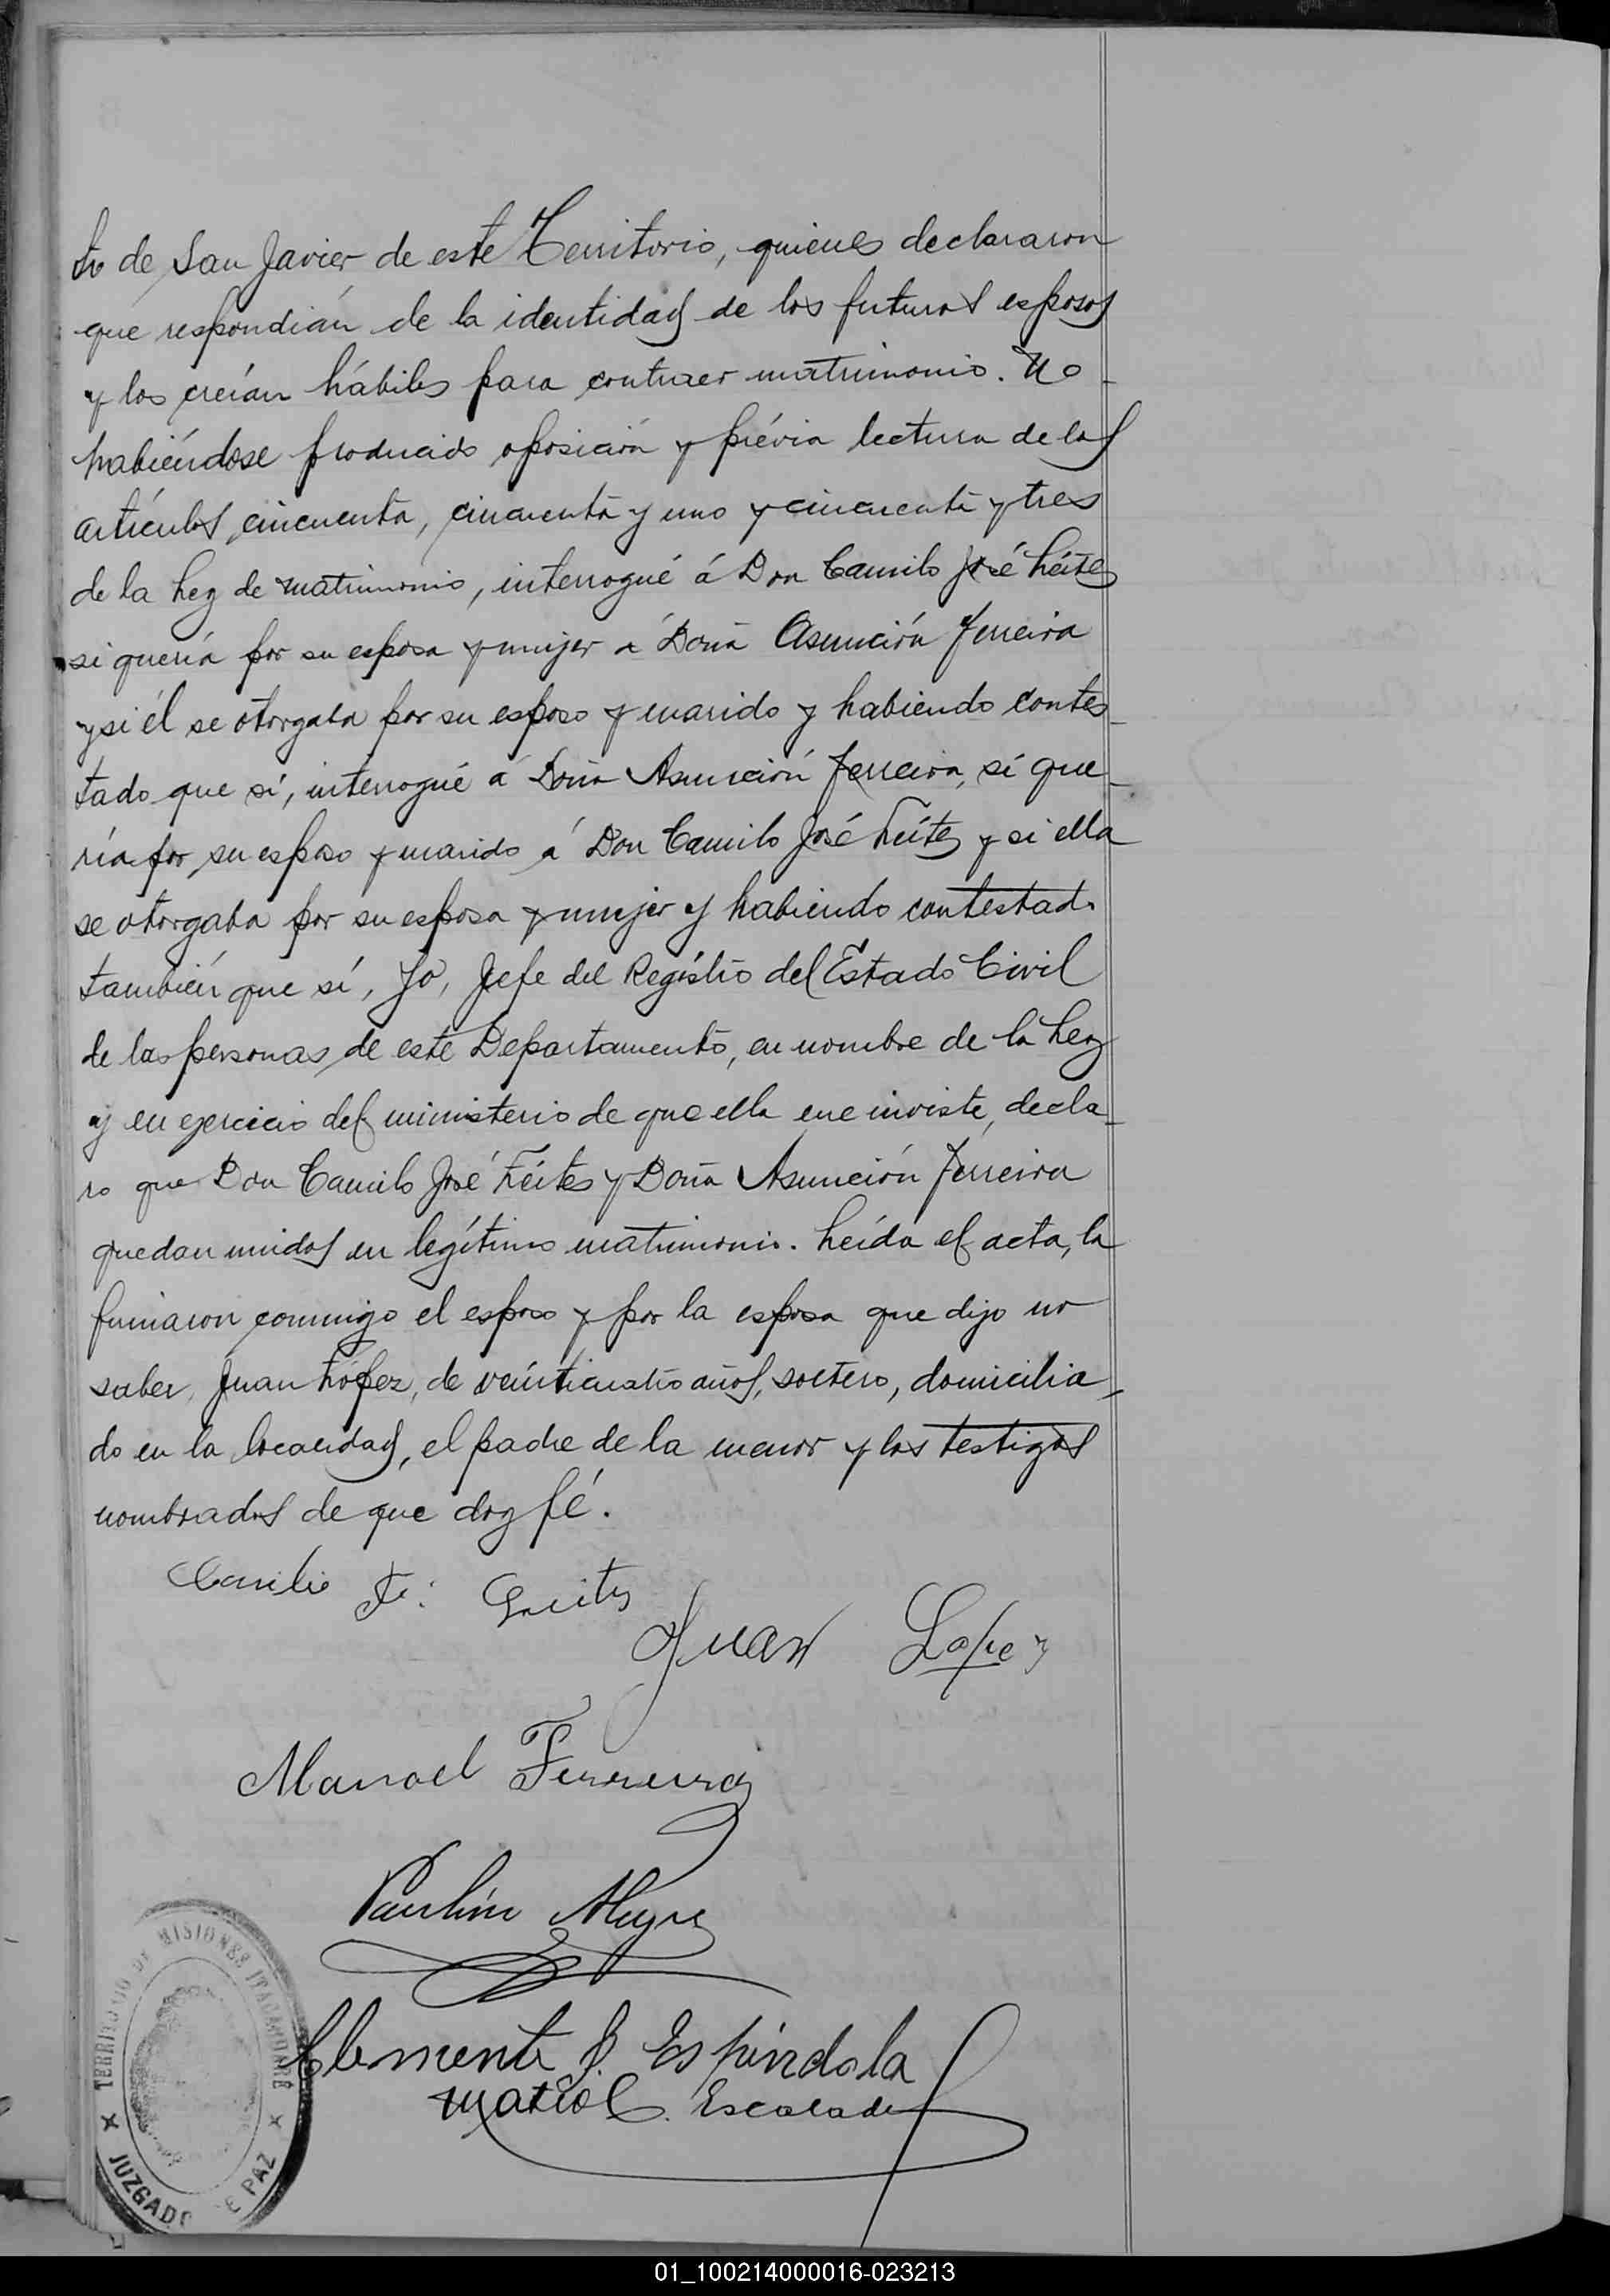 to de San Javier de este Territorio, quienes declararon
que respondián de la identidad de los futuros esposos
y los creían hábiles para contraer matrimonio. No
habiéndose producido oposición y prévia lectura de los
artículos cincuenta, cincuenta y uno y cincuenta y tres
de la Ley de matrimonio, interrogué á Don Camilo José Leites
si quería por su esposa y mujer a Doña Asunción Ferreira
y si él se otorgaba por su esposo y marido y habiendo contes-
tado que sí, interrogué á Doña Asunción Ferreira, si que-
ría por su esposo y marido á Don Camilo José Leites y si ella
se otorgaba por su esposa y mujer y habiendo contestado
también que sí, Yo, Jefe del Registro del Estado Civil
de las personas de este Departamento, en nombre de la Ley
y en ejercicio del ministerio de que ella me inviste, decla-
ro que Don Camilo José Leites y Doña Asunción Ferreira
quedan unidos en legítimo matrimonio. Leída el acta, la
firmaron conmigo el esposo y por la esposa que dijo no
saber, Juan López, de veinticuatro años, soltero, domicilia-
do en la localidad, el padre de la menor y los testigos
nombrados de que doy fé.
Camilo
Juan Lopez
Manoel Ferreira
Paulino Alegre
Clemente J. Espíndola
Escalada
TERRITORIO DE MISIONES ITACARUARÉ
JUZGADO DE PAZ
01_100214000016-023213